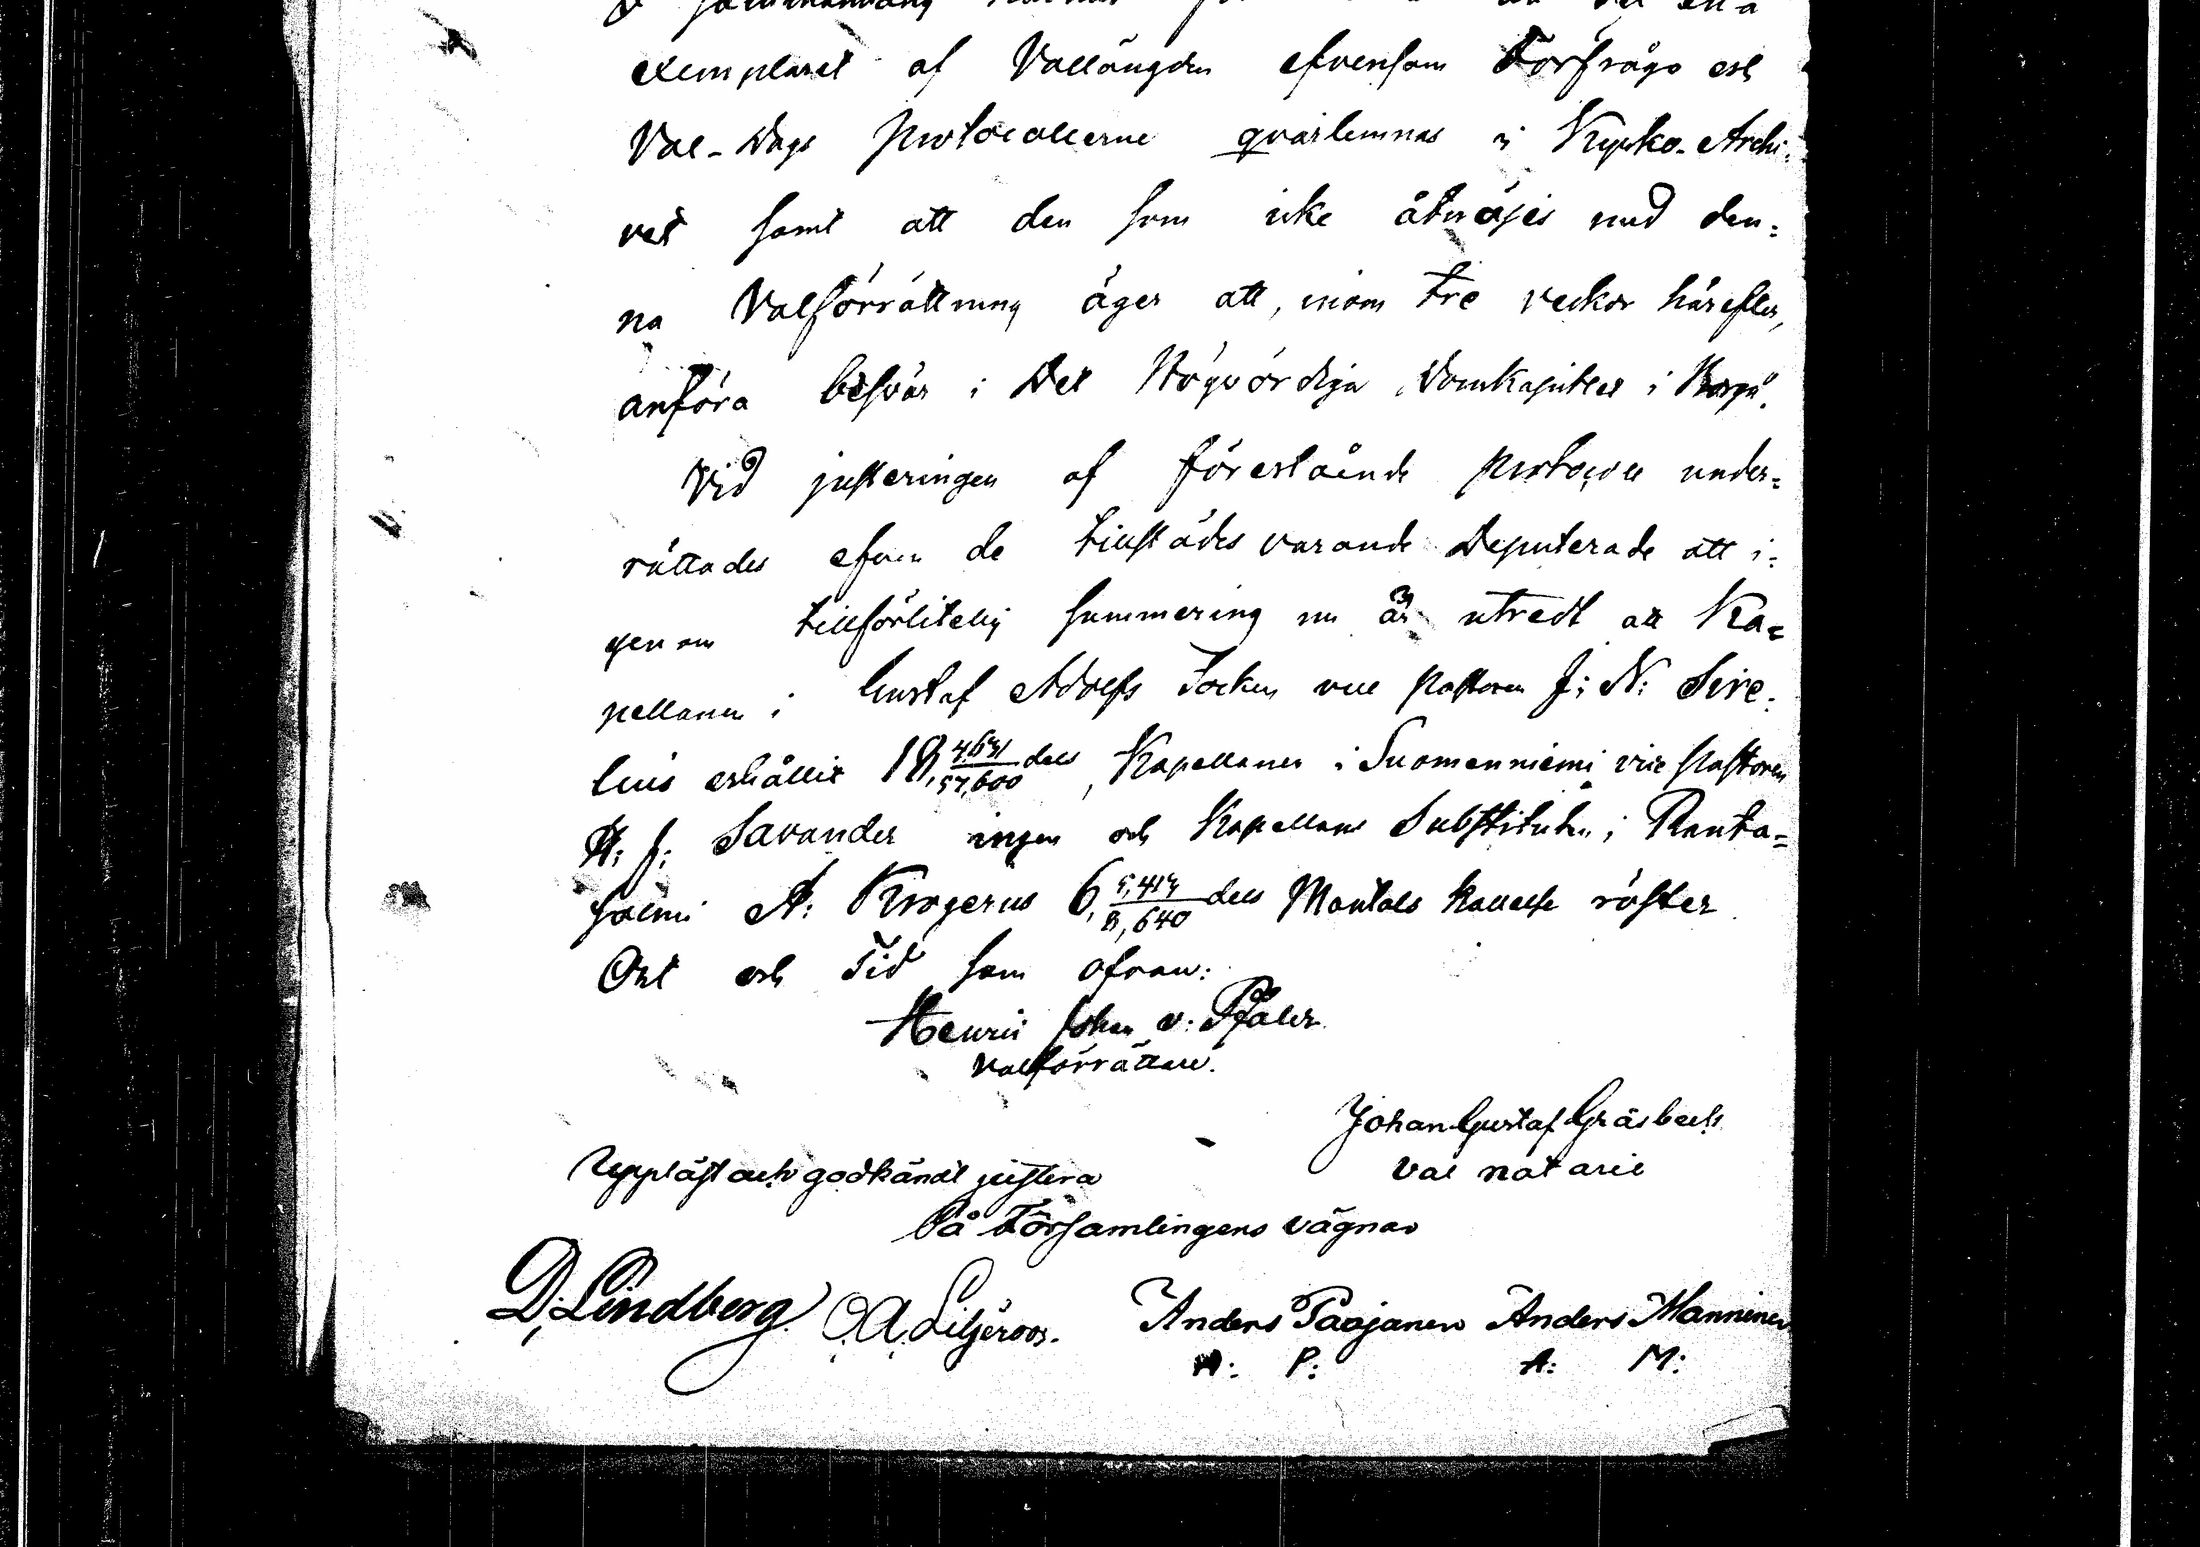 exemplaret af Vallängden efvensom Förfrågo och
Val-Dags protocollerne qvarlemnas i Kyrko-Archi:
vet samt att den som icke åtnöjes med den:
na Valförrättning äger att, inom tre veckor härefter,
anföra besvär i Det Högvördiga Domkapitlet i Borgå.
Vid justeringen af förestående protocoll under=
rättades efven de tillstädes varande Deputerade att i:
genom tillförlitelig summering nu är utredt att Ka=
pellanen i Gustaf Adolfs Socken vice pastoren J: N: Sire:
lius erhållit 18, 4,631/57,600 dels, Kapellanen i Suomenniemi vice Pastoren
H: J: Savander ingen och Kapellans Substituten i Ranta=
salmi A: Krogerus 6, 5,413/8,640 dels Mantals kallelse röster
Ort och Tid som ofvan:
Henric Johan v: Pfaler
Valförrättare.
Johan Gustaf Gräsbeck
Val notarie
Uppläst och godkändt justera
På Församlingens vägnar
D. Lindberg. O. A. Liljeroos. Anders Paajanen Anders Manninen
A: P: A: M: